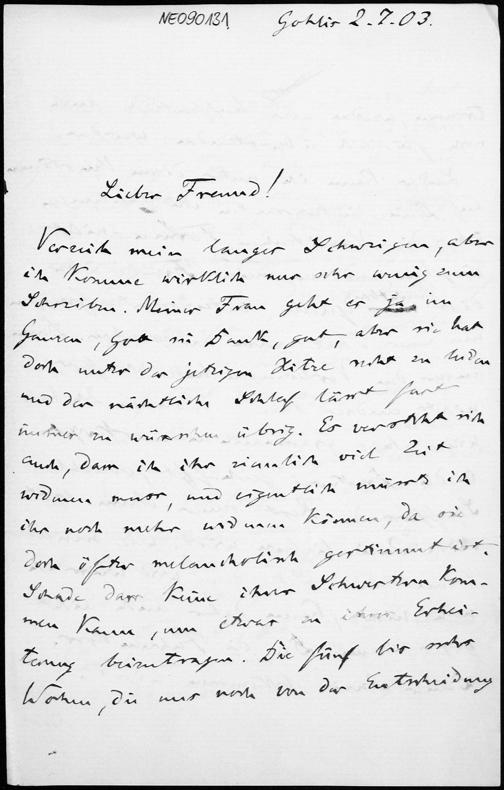 NE090131
Gohlis 2.7.03.
Lieber Freund!
Verzeih mein langes Schweigen, aber
ich komme wirklich nur sehr wenig zum
Schreiben. Meiner Frau geht es ja im
Ganzen, Gott sei Dank, gut, aber sie hat
doch unter der jetzigen Hitze recht zu leiden
und der nächtliche Schlaf lässt fast
immer zu wünschen übrig. Es versteht sich
auch, dass ich ihr ziemlich viel Zeit
widmen muss, und eigentlich müsste ich
ihr noch mehr widmen können, da sie
doch öfter melancholisch gestimmt ist.
Schade dass keine ihrer Schwestern kom-
men kann, um etwas zu ihrer Erhei-
terung beizutragen. Die fünf bis sechs
Wochen, die uns noch von der Entscheidung